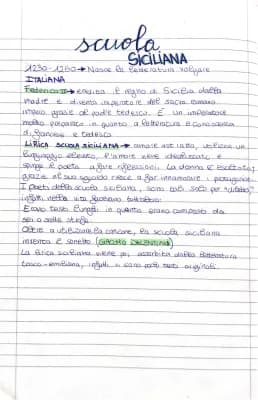 scuola
SICILIANA
1230-1250 → Nasce la letteratura volgare
ITALIANA
Federico II → eredita il regno di Sicilia dalla
madre e diventa imperatore del sacro romano
impero grazie al padre tedesco. È un imperatore
molto in quanto a letteratura e conoscenza
di francese e tedesco
LIRICA SCUOLA SICILIANA → amore cortese, utilizza un
linguaggio elevato, l'amore viene idealizzato e
spinge il poeta a fare riflessioni. La donna è esaltata,
grazie al suo sguardo riesce a far innamorare i
I poeti della scuola siciliana, sono tali solo per "
infatti nella vita facevano tutt'altro.
Erano testi lunghi in quanto erano composti da
sei o sette strofe.
Oltre a utilizzare la canzone, la scuola siciliana
inventa il sonetto (GIACOMO DA LENTINI)
La lirica siciliana viene poi assorbita dalla letteratura
tosco-emiliana, infatti ci sono pochi testi originali.